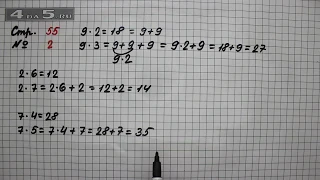 4 на 5.ru
Стр. 55 9·2=18=9+9
№ 2 9·3=9+9+9=9·2+9=18+9=27
9·2
2·6=12
2·7=2·6+2=12+2=14
7·4=28
7·5=7·4+7=28+7=35